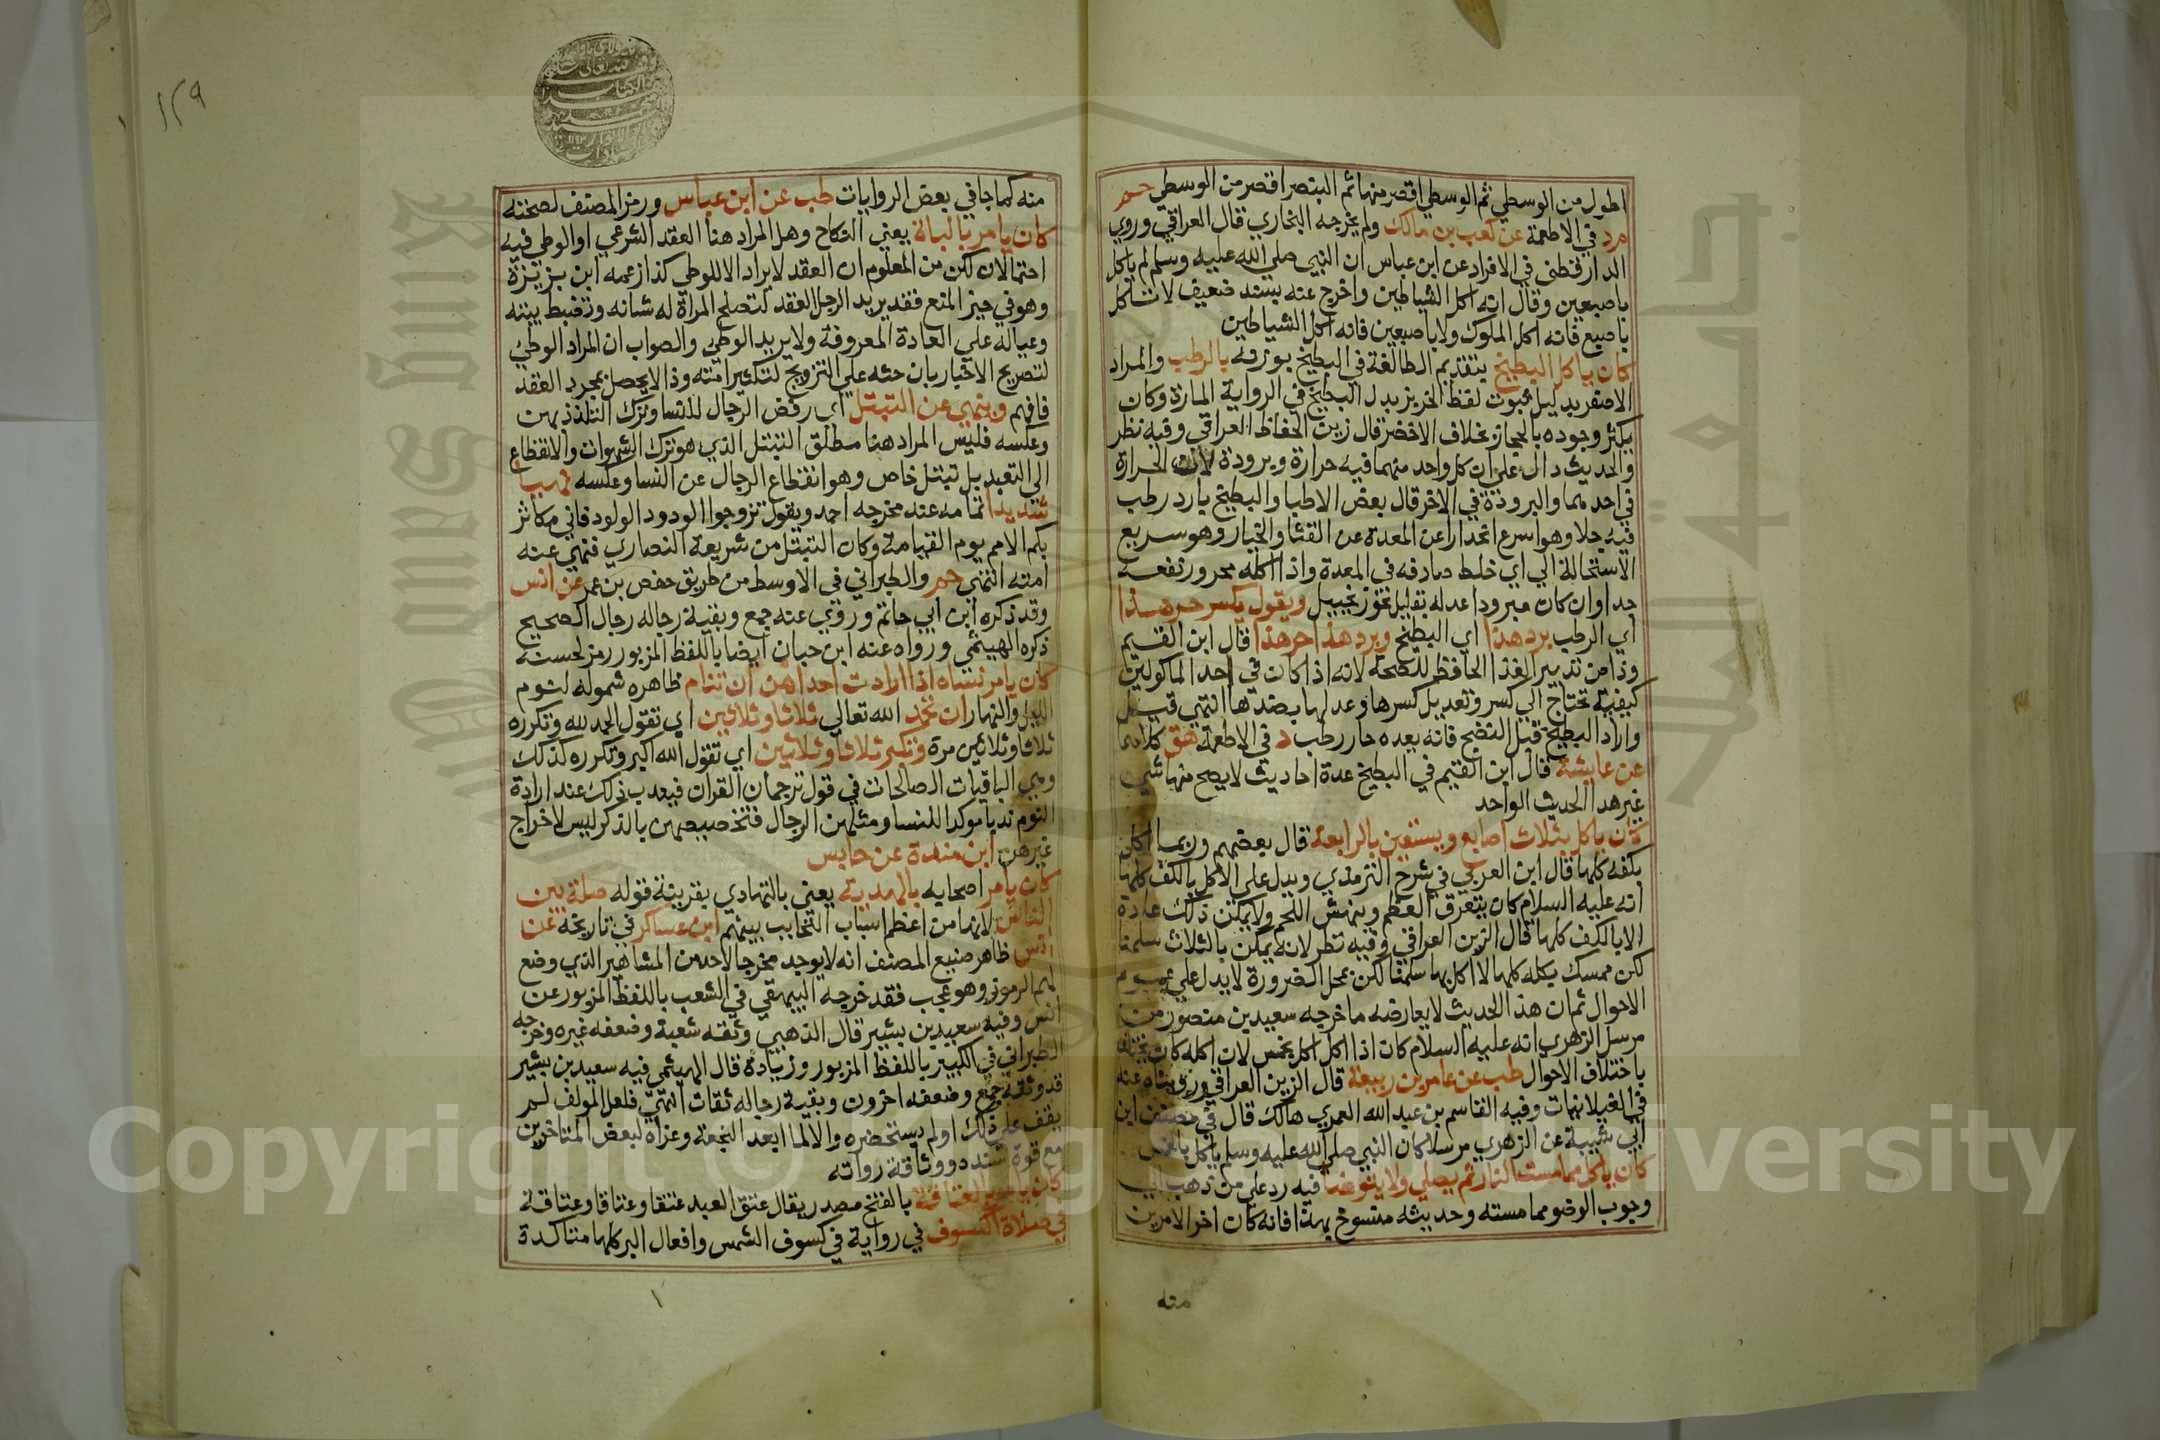 اطول من الوسطي ثم الوسطي اقصر منها ثم البنصر اقصر من الوسطي حم
م د في الاطعمة عن كعب بن مالك ولم يخرجه البخاري قال العراقي وروي
الدارقطني في الافراد عن ابن عباس ان النبي صلي الله عليه وسلم لم ياكل
باصبعين وقال انه اكل الشياطين واخرج عنه بسند ضعيف لا تاكل
باصبع فانه اكل الملوك ولا باصبعين فانه اكل الشياطين
كان ياكل البطيخ بتقديم الطا لغة في البطيخ بوزنه بالرطب والمراد
الاصفر بدليل ثبوت لفظ الخربز بدل البطيخ في الرواية المارة وكان
يكثر وجوده بالحجاز بخلاف الاخضر قال زين الحفاظ العراقي وفيه نظر
والحديث دال علي ان كل واحد منهما فيه حرارة وبرودة لان الحرارة
في احدهما والبرودة في الاخر قال بعض الاطبا والبطيخ بارد رطب
فيه جلا وهو اسرع انحدارا عن المعدة عن القثا والخيار وهو سريع
الاستحالة الي اي خلط صادفه في المعدة واذا اكله محرور نفعه
جدا وان كان مبرودا عدله بقليل نحو زنجبيل ويقول يكسر حر هذا
اي الرطب برد هذا اي البطيخ وبرد هذا حر هذا قال ابن القيم
وذا من تدبير الغذا الحافظ للصحة لانه اذا كان في احد الماكولين
كيفية تحتاج الي كسر وتعديل كسرها وعدلها بضدها انتهي قيل
واراد البطيخ قبل النضج فانه بعده حار رطب د في الاطعمة هق كلاهما
عن عايشة قال ابن القيم في البطيخ عدة احاديث لا يصح منها شي
غير هذا الحديث الواحد
كان ياكل بثلاث اصابع ويستعين بالرابعة قال بعضهم وربما اكل
بكفه كلها قال ابن العربي في شرح الترمذي ويدل علي الاكل بالكف كلها
انه عليه السلام كان يتعرق العظم وينهش اللحم ولا يمكن ذلك عادة
الا بالكف كلها قال الزين العراقي وفيه نظر لانه يمكن بالثلاث سلمنا
لكن ممسك بكله كلها لا اكل بها سلمنا لكن محل الضرورة لا يدل علي عموم
الاحوال ثم ان هذا الحديث لا يعارضه ما خرجه سعيد بن منصور من
مرسل الزهري انه عليه السلام كان اذا اكل اكل بخمس لان اكله كان يختلف
باختلاف الاحوال طب عن عامر بن ربيعة قال الزين العراقي ورويناه عنه
في الغيلانيات وفيه القاسم بن عبد الله العمري هالك قال في مصنف ابن
ابي شيبة عن الزهري مرسلا كان النبي صلي الله عليه وسلم ياكل بالخمس
كان ياكل مما مست النار ثم يصلي ولا يتوضا فيه رد علي من ذهب الي
وجوب الوضو مما مسته وحديثه منسوخ بهذا فانه كان اخر الامرين
منه
١٢٩
منه كما جا في بعض الروايات طب عن ابن عباس ورمز المصنف لصحته
كان يامر بالباة يعني النكاح وهل المراد هنا العقد الشرعي او الوطي فيه
احتمالان لكن من المعلوم ان العقد لا يراد الا للوطي كذا زعمه ابن بزيزة
وهو في حيز المنع فقد يريد الرجل العقد لتصلح المراة له شانه وتضبط بيته
وعياله علي العادة المعروفة ولا يريد الوطي والصواب ان المراد الوطي
لتصريح الاخبار بان حثه علي التزويج لتكثير امته وذا لا يحصل بمجرد العقد
فافهم وينهي عن التبتل اي رفض الرجال للنسا وترك التلذذ بهن
وعكسه فليس المراد هنا مطلق التبتل الذي هو ترك الشهوات والانقطاع
الي التعبد بل تبتل خاص وهو انقطاع الرجال عن النسا وعكسه نهيا
شديدا تمامه عند مخرجه احمد ويقول تزوجوا الودود الولود فاني مكاثر
بكم الامم يوم القيامة وكان التبتل من شريعة النصاري فنهي عنه
امته انتهي حم والطبراني في الاوسط من طريق حفص بن عمر عن انس
وقد ذكره ابن ابي حاتم وروي عنه جمع وبقية رجاله رجال الصحيح
ذكره الهيثمي ورواه عنه ابن حبان ايضا باللفظ المزبور رمز لحسنه
كان يامر نساه اذا ارادت احداهن ان تنام ظاهره شموله لنوم
الليل والنهار ان تحمد الله تعالي ثلاثا وثلاثين اي تقول الحمد لله وتكرره
ثلاثا وثلاثين مرة وتكبر ثلاثا وثلاثين اي تقول الله اكبر وتكرره كذلك
وهي الباقيات الصالحات في قول ترجمان القران فيندب ذلك عند ارادة
النوم ندبا موكدا للنسا ومثلهن الرجال فتخصيصهن بالذكر ليس لاخراج
غيرهن ابن مندة عن حابس
كان يامر اصحابه بالهدية يعني بالتهادي بقرينة قوله صلة بين
الناس لانها من اعظم اسباب التحابب بينهم ابن عساكر في تاريخه عن
انس ظاهر صنيع المصنف انه لا يوجد مخرجا لاحد من المشاهير الذي وضع
لهم الرموز وهو عجب فقد خرجه البيهقي في الشعب باللفظ المزبور عن
انس وفيه سعيد بن بشير قال الذهبي وثقه شعبة وضعفه غيره وخرجه
الطبراني في الكبير باللفظ المزبور وزيادة قال الهيثمي فيه سعيد بن بشير
قد وثقه جمع وضعفه اخرون وبقية رجاله ثقات انتهي فلعل المولف لم
يقف علي ذلك او لم يستحضره والا لما ابعد النجعة وعزاه لبعض المتاخرين
مع قوة سنده ووثاقة رواته
كان يامر بالعتاقة بالفتح مصدر يقال عتق العبد عتقا وعتاقا وعتاقة
في صلاة الكسوف في رواية في كسوف الشمس وافعال البر كلها متاكدة
١
Copyright © King Saud University